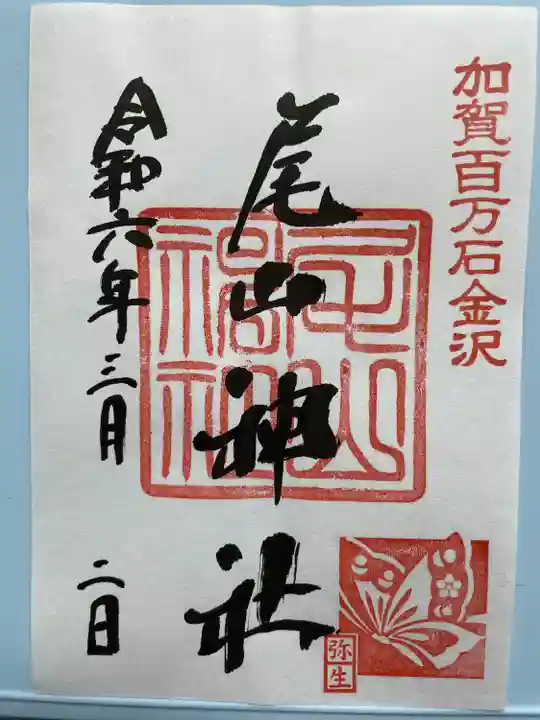 加賀百万石金沢
尾山神社
令和六年三月
二日
弥生